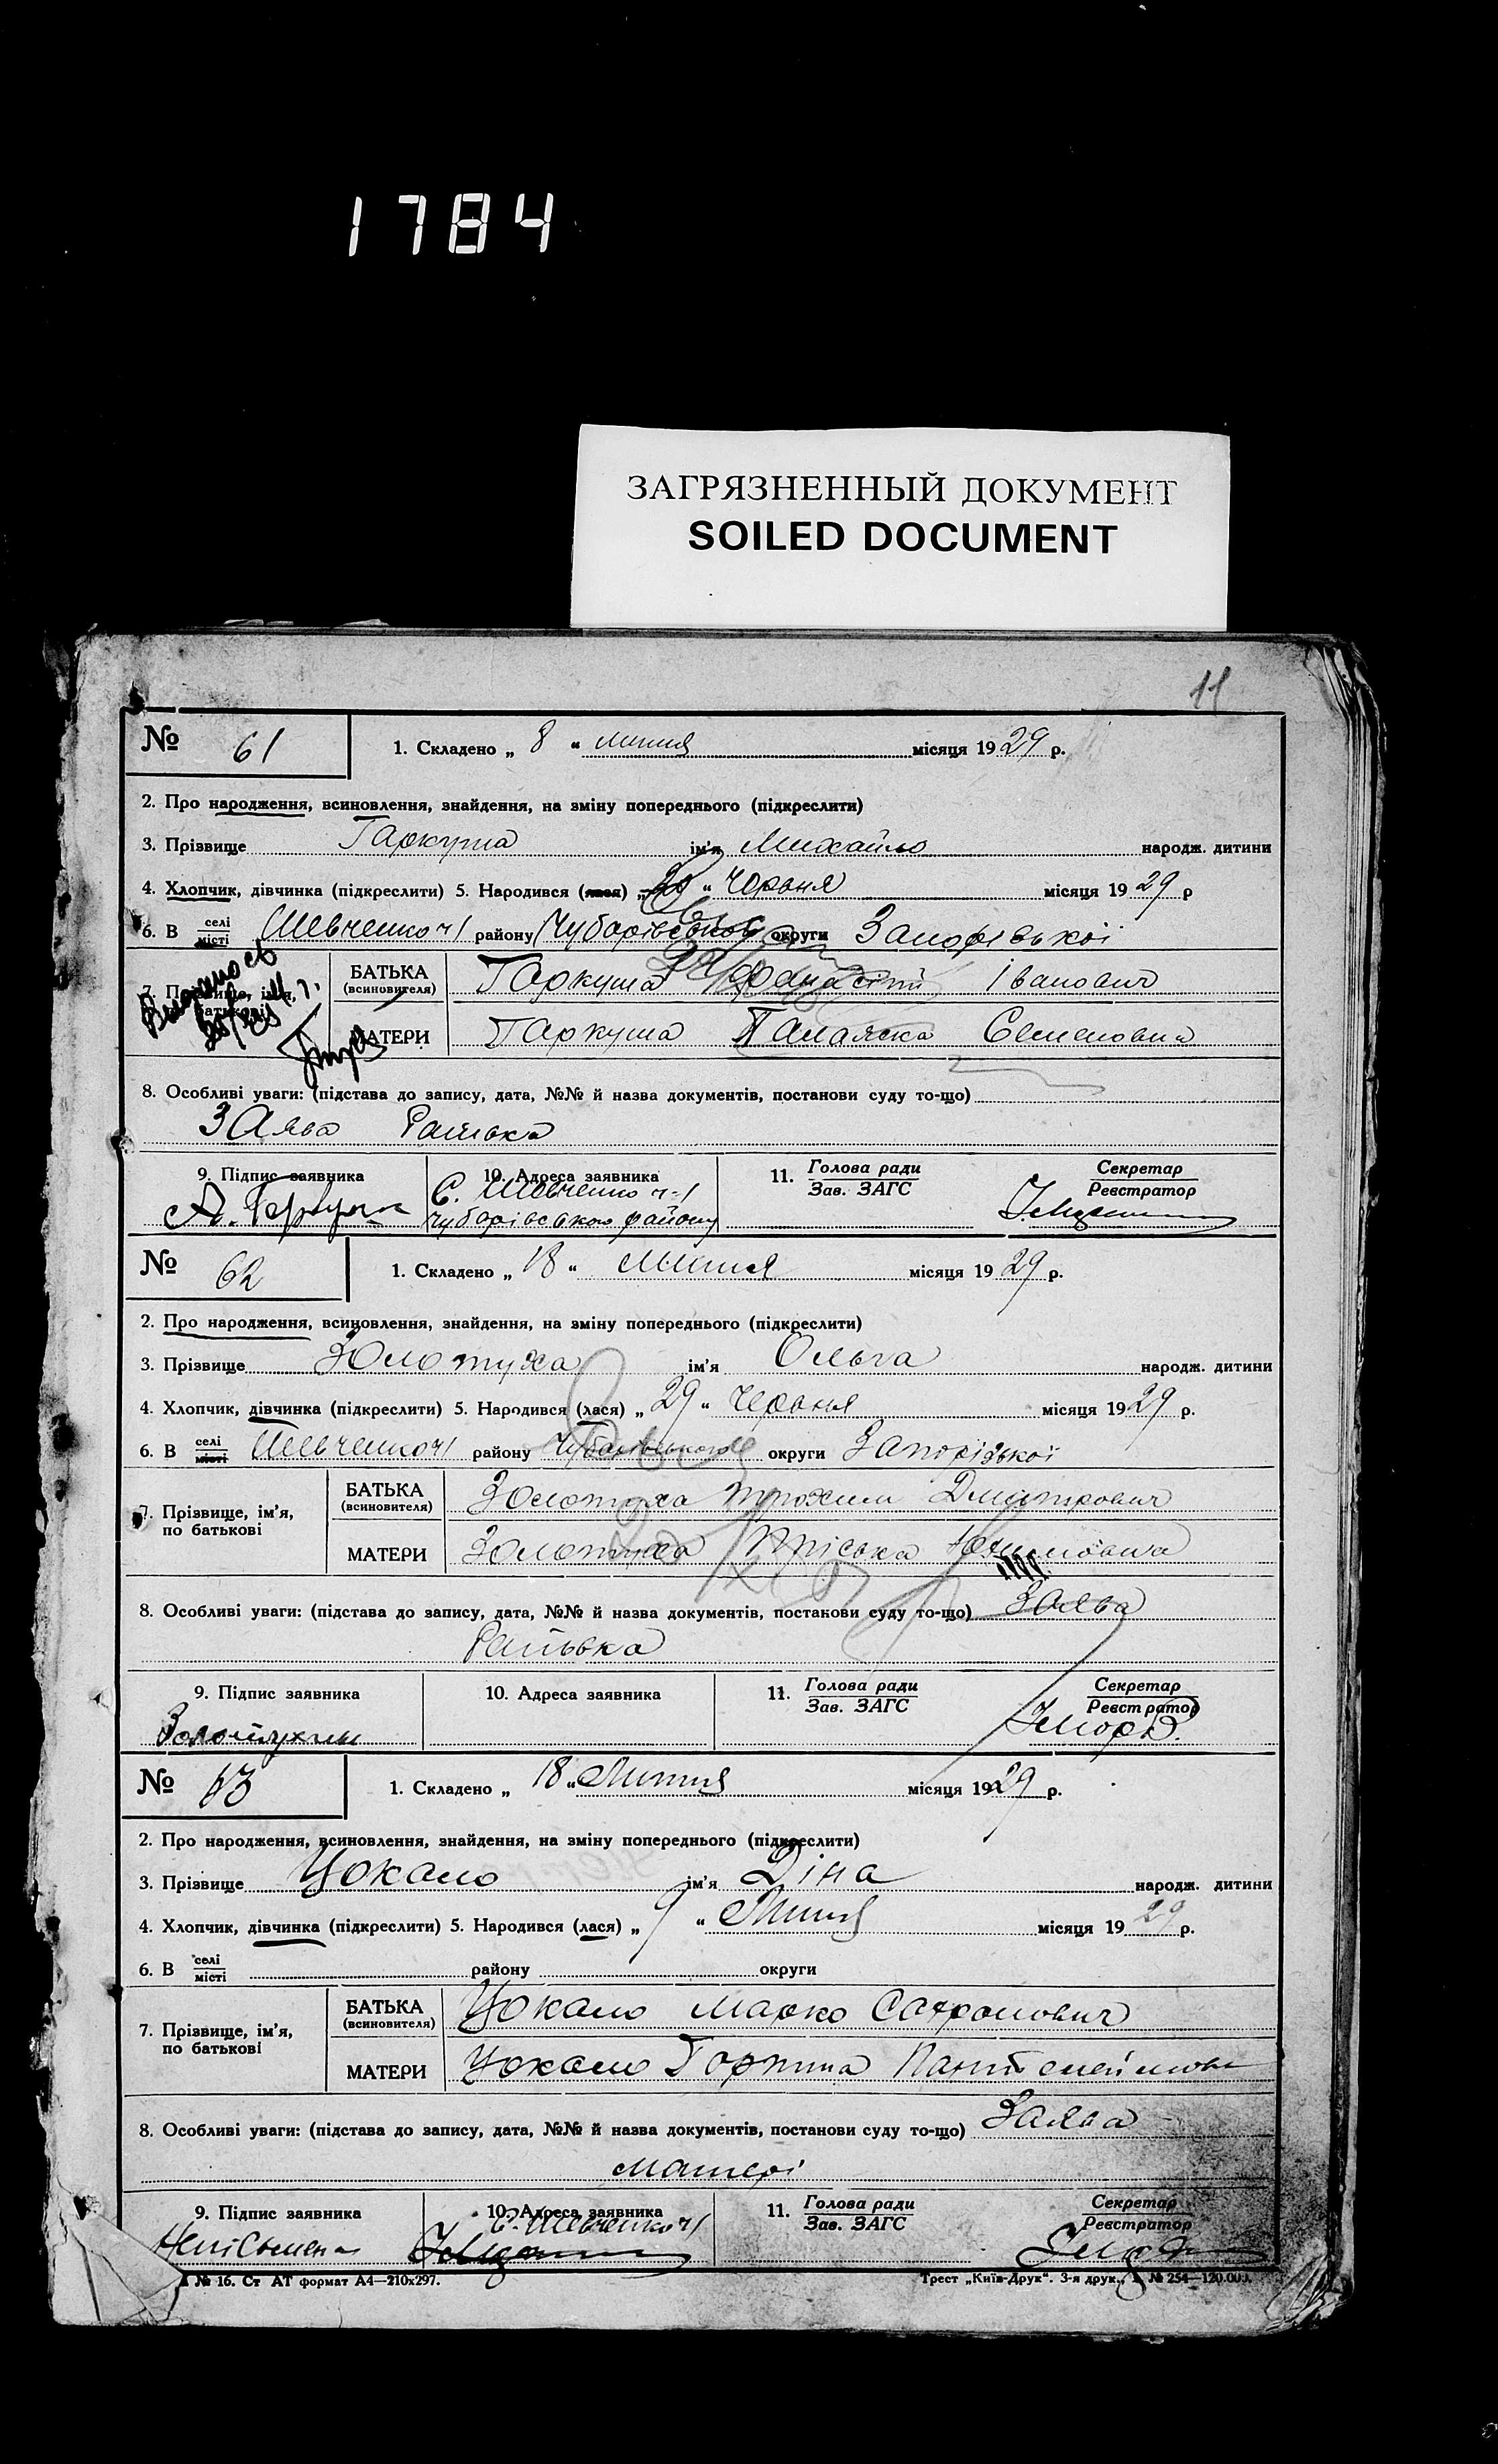 1784
ЗАГРЯЗНЕННЫЙ ДОКУМЕНТ
SOILED DOCUMENT
11
№ 61 1. Складено „ 8 “ липня місяця 1929 р.
2. Про народження, всиновлення, знайдення, на зміну попереднього (підкреслити)
3. Прізвище Гаркуша ім'я Михайло народж. дитини
4. Хлопчик, дівчинка (підкреслити) 5. Народився (лася) „ “ Червня місяця 1929 р
6. В селі місті Шевченко ч1 району Чубарівської округи Запорізької
7. Прізвище, ім'я, по батькові
БАТЬКА (всиновителя) Гаркуша Іванович
МАТЕРИ Гаркуша Палажка Семеновна
8. Особливі уваги: (підстава до запису, дата, №№ й назва документів, постанови суду то-що)
Заява Батька
9. Підпис заявника 10. Адреса заявника 11. Голова ради Зав. ЗАГС Секретар Реєстратор
С. Шевченко ч-1
Чубарівського району
№ 62 1. Складено „ 18 “ Липня місяця 1929 р.
2. Про народження, всиновлення, знайдення, на зміну попереднього (підкреслити)
3. Прізвище Золотуха ім'я Ольга народж. дитини
4. Хлопчик, дівчинка (підкреслити) 5. Народився (лася) „ 29 “ Червня місяця 1929 р.
6. В селі місті Шевченко ч1 району Чубарівського округи Запорізької
7. Прізвище, ім'я, по батькові
БАТЬКА (всиновителя) Золотуха Трохим Дмитрович
МАТЕРИ Золотуха Пріська
8. Особливі уваги: (підстава до запису, дата, №№ й назва документів, постанови суду то-що) Заява
Батька
9. Підпис заявника 10. Адреса заявника 11. Голова ради Зав. ЗАГС Секретар Реєстратор
№ 63 1. Складено „ 18 “ Липня місяця 1929 р.
2. Про народження, всиновлення, знайдення, на зміну попереднього (підкреслити)
3. Прізвище Цокало ім'я Діна народж. дитини
4. Хлопчик, дівчинка (підкреслити) 5. Народився (лася) „ 9 “ Липня місяця 1929 р.
6. В селі місті району округи
7. Прізвище, ім'я, по батькові
БАТЬКА (всиновителя) Цокало Марко Сафронович
МАТЕРИ Цокало Горпина
8. Особливі уваги: (підстава до запису, дата, №№ й назва документів, постанови суду то-що) Заява
матері
9. Підпис заявника 10. Адреса заявника 11. Голова ради Зав. ЗАГС Секретар Реєстратор
С. Шевченко ч1
№ 16. Ст АТ формат А4—210х297. Трест „Київ-Друк“. 3-я друк., № 254—120.000.